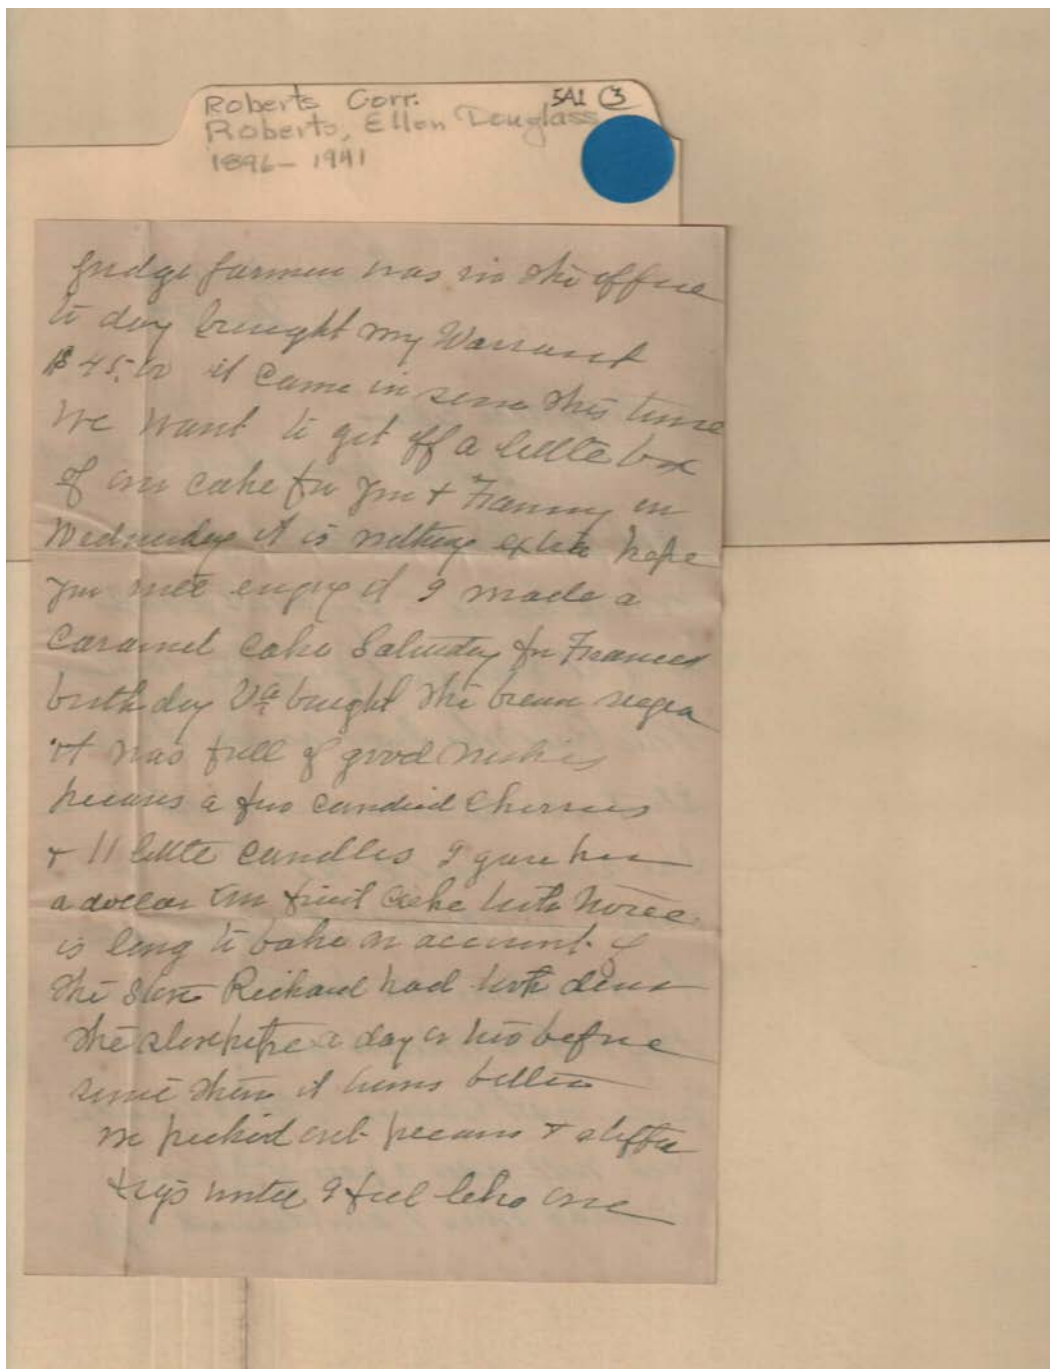 Roberts Corr. 5A1 3
Roberts, Ellen Douglass
1896-1941
Judge Jarman was in the office
to day brought my Warrant
$45.00 it came in soon this time
We want to get off a little box
of our cake for you & Franny on
Wednesday it is nothing extra hope
you will enjoy it I made a
Caramel Cake Saturday for Frances
birth day Va bought the brown sugar
it was full of good
pecans a few candied Cherries
& 11 little candles I gave her
a dollar Our fruit Cake both
is long to bake on account of
the stove Richard had
the stovepipe a day or two before
since then it burns better
we picked out pecans &
until I feel like one